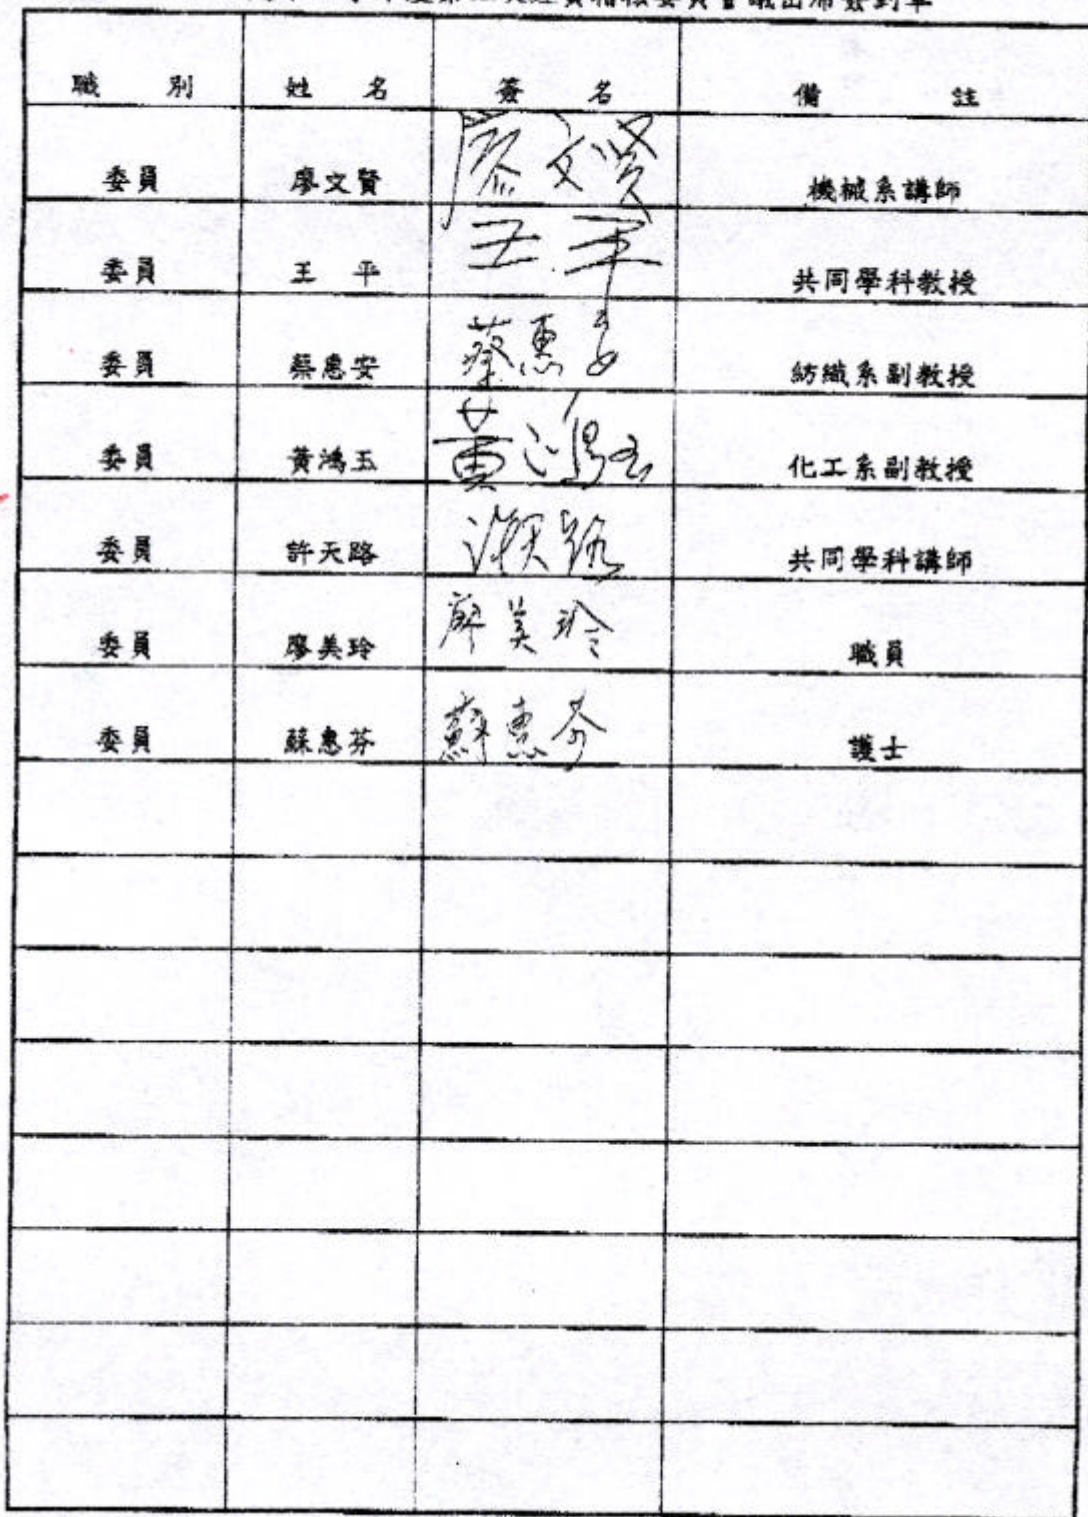 經費稽核委員會議出席簽到單
職別 姓名 簽名 備註
委員 廖文賢 廖文賢 機械系講師
委員 王平 王平 共同學科教授
委員 蔡惠安 蔡惠安 紡織系副教授
委員 黃鴻玉 黃鴻玉 化工系副教授
委員 許天路 許天路 共同學科講師
委員 廖美玲 廖美玲 職員
委員 蘇惠芬 蘇惠芬 護士